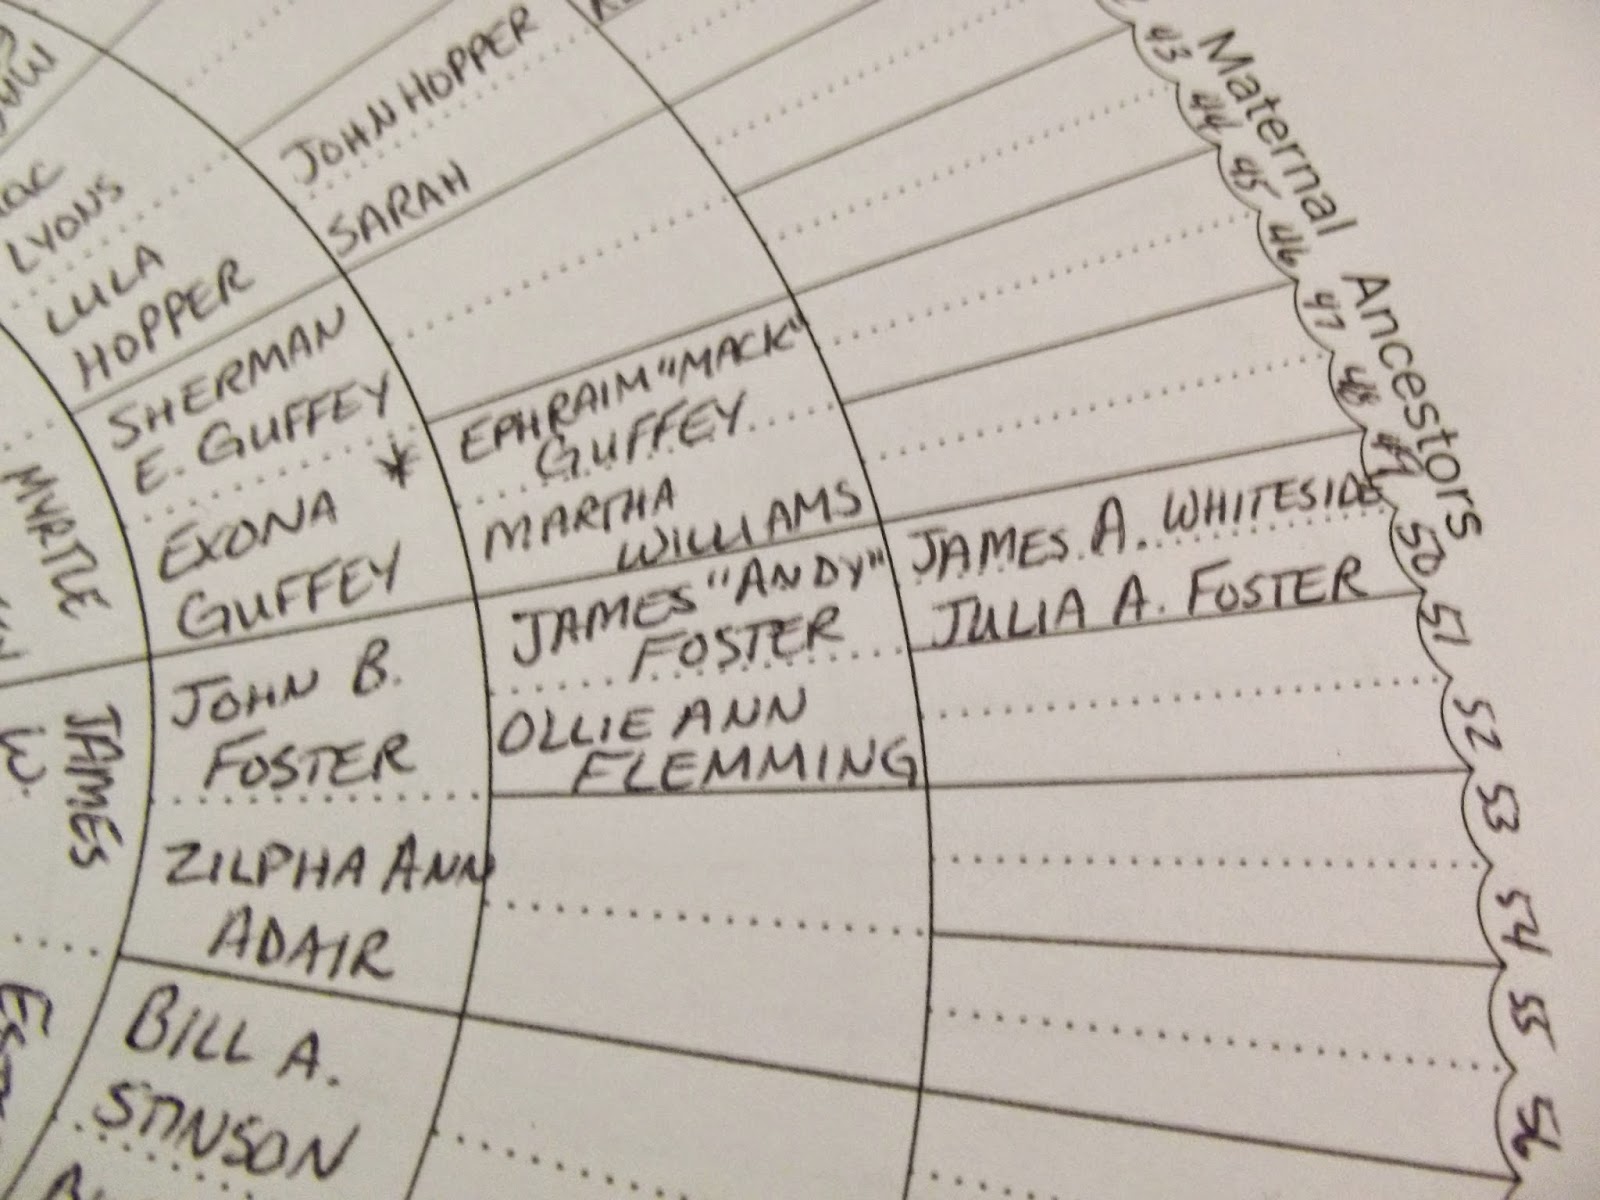 JOHN HOPPER
SARAH
LYONS
LULA
HOPPER
SHERMAN
E. GUFFEY
*
EXONA
GUFFEY
EPHRAIM "MACK"
GUFFEY
MARTHA
WILLIAMS
JAMES "ANDY"
FOSTER
OLLIE ANN
FLEMMING
JAMES A. WHITESIDE
JULIA A. FOSTER
MYRTLE
JAMES
W.
JOHN B.
FOSTER
ZILPHA ANN
ADAIR
BILL A.
STINSON
Maternal Ancestors
43
44
45
46
47
48
49
50
51
52
53
54
55
56